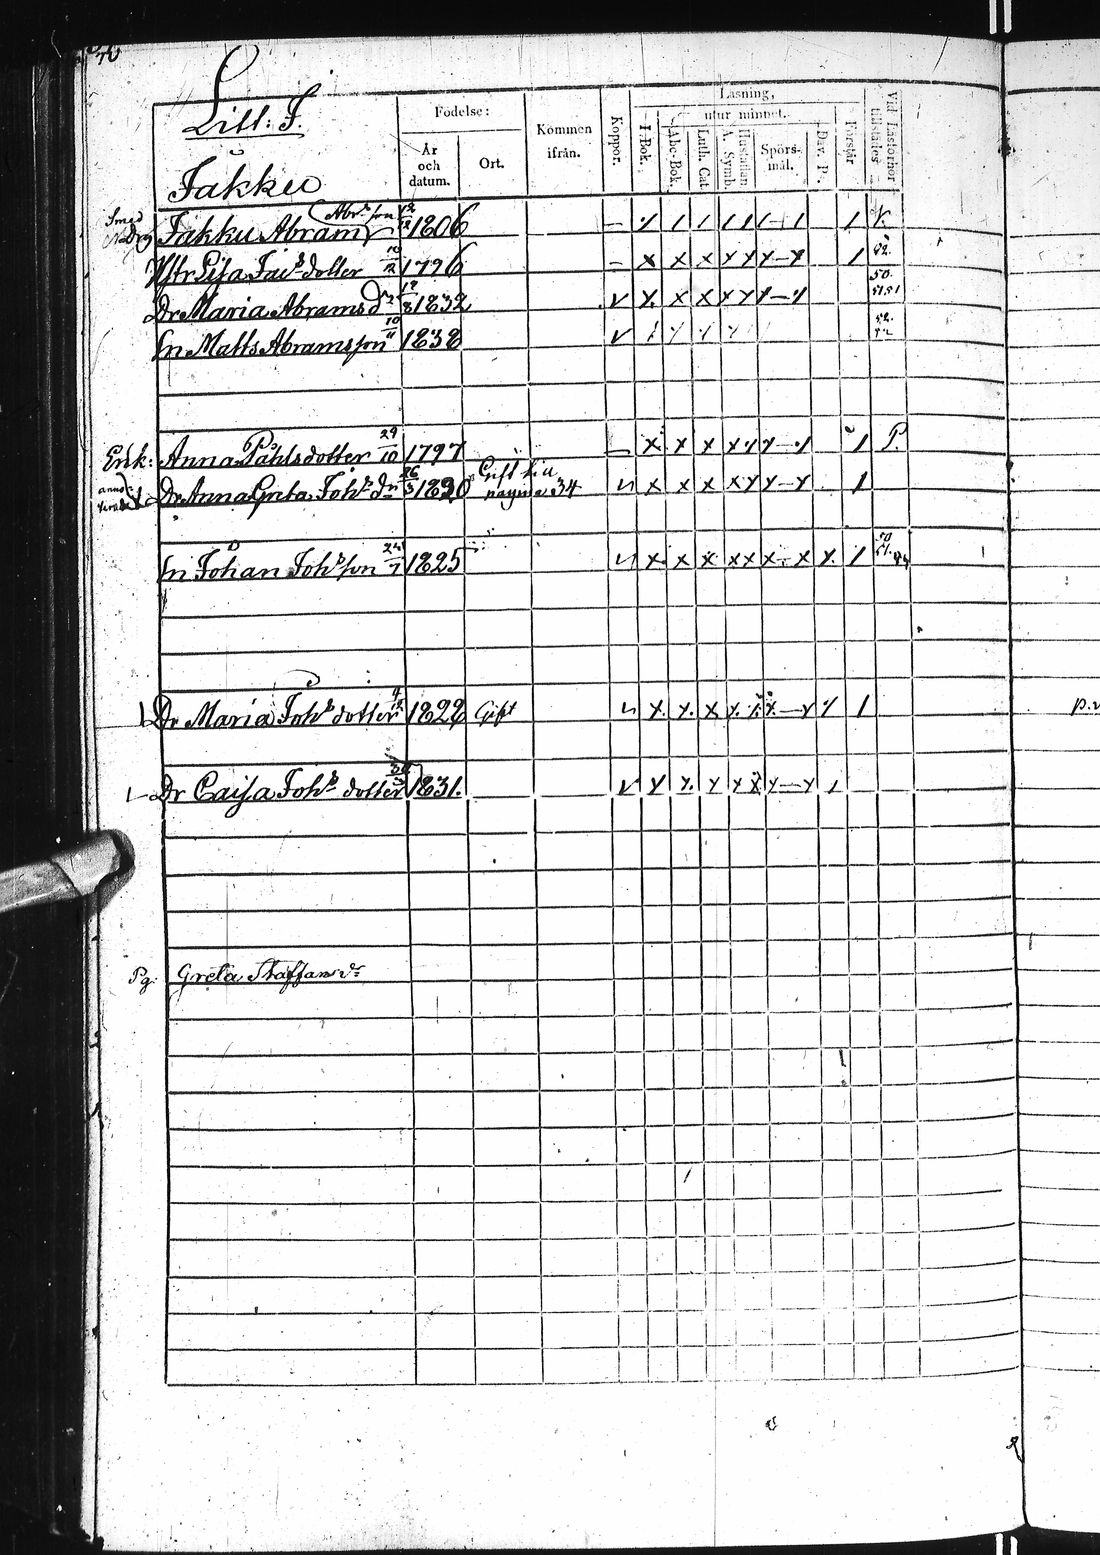 Litt: J.
Jakku
Födelse:
År och datum.
Ort.
Kommen ifrån.
Koppor.
Läsning,
utur minnet.
I Bok.
Abc-Bok.
Luth. Cat.
Hustaflan A. Symb.
Spörsmål.
Dav. P.
Förstår
Vid Läsförhör tillstädes
Smed
Jakku Abram Abr:son 12/12 1806 – x 1 1 1 1 1 – 1 1
Hstr Lisa Jac:s dotter 10/12 1796 – x x x x x x – x 1 52.
Dr Maria Abrams Dr 12/8 1832 v x x x x x x – x 50. 51.51
Sn Matts Abramsson 10/11 1838 v 52. 52
Enk: Anna Påhlsdotter 29/10 1797 – x x x x x x – x 1 P.
Dr Anna Greta Joh:s dr 26/3 1830 Gift 34 x x x x x x – x 1
Sn Johan Joh:s son 24/7 1825 x x x x x x – x x 1 50 51.
Dr Maria Joh:s dotter 1822 Gift x x x x x x – x x 1
Dr Caisa Joh:s dotter 1831. v x x x x x x – x 1
Pg: Greta Staffans dr